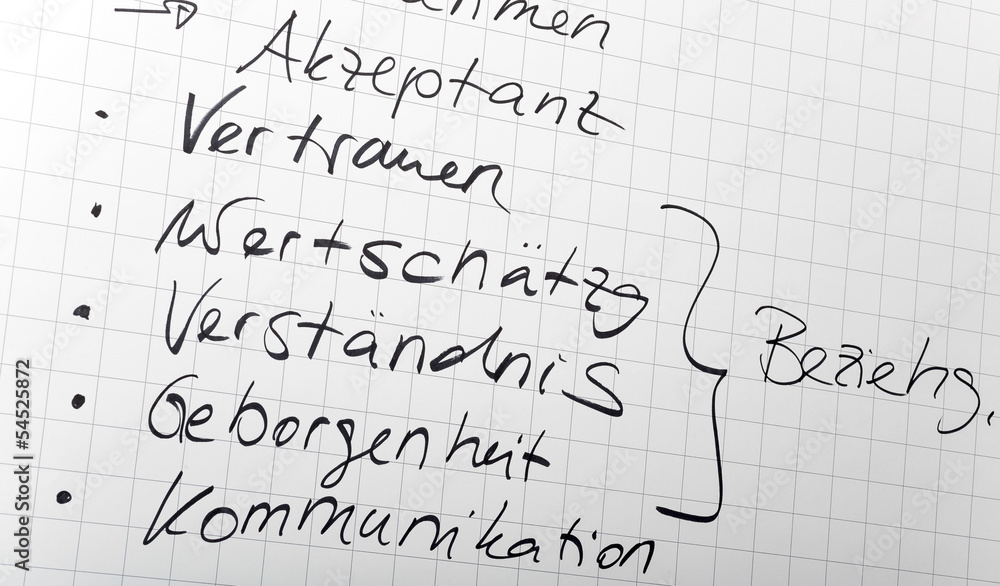 → Akzeptanz
• Vertrauen
• Wertschätzg
• Verständnis
• Geborgenheit
• Kommunikation
} Beziehg.
Adobe Stock | #54525872